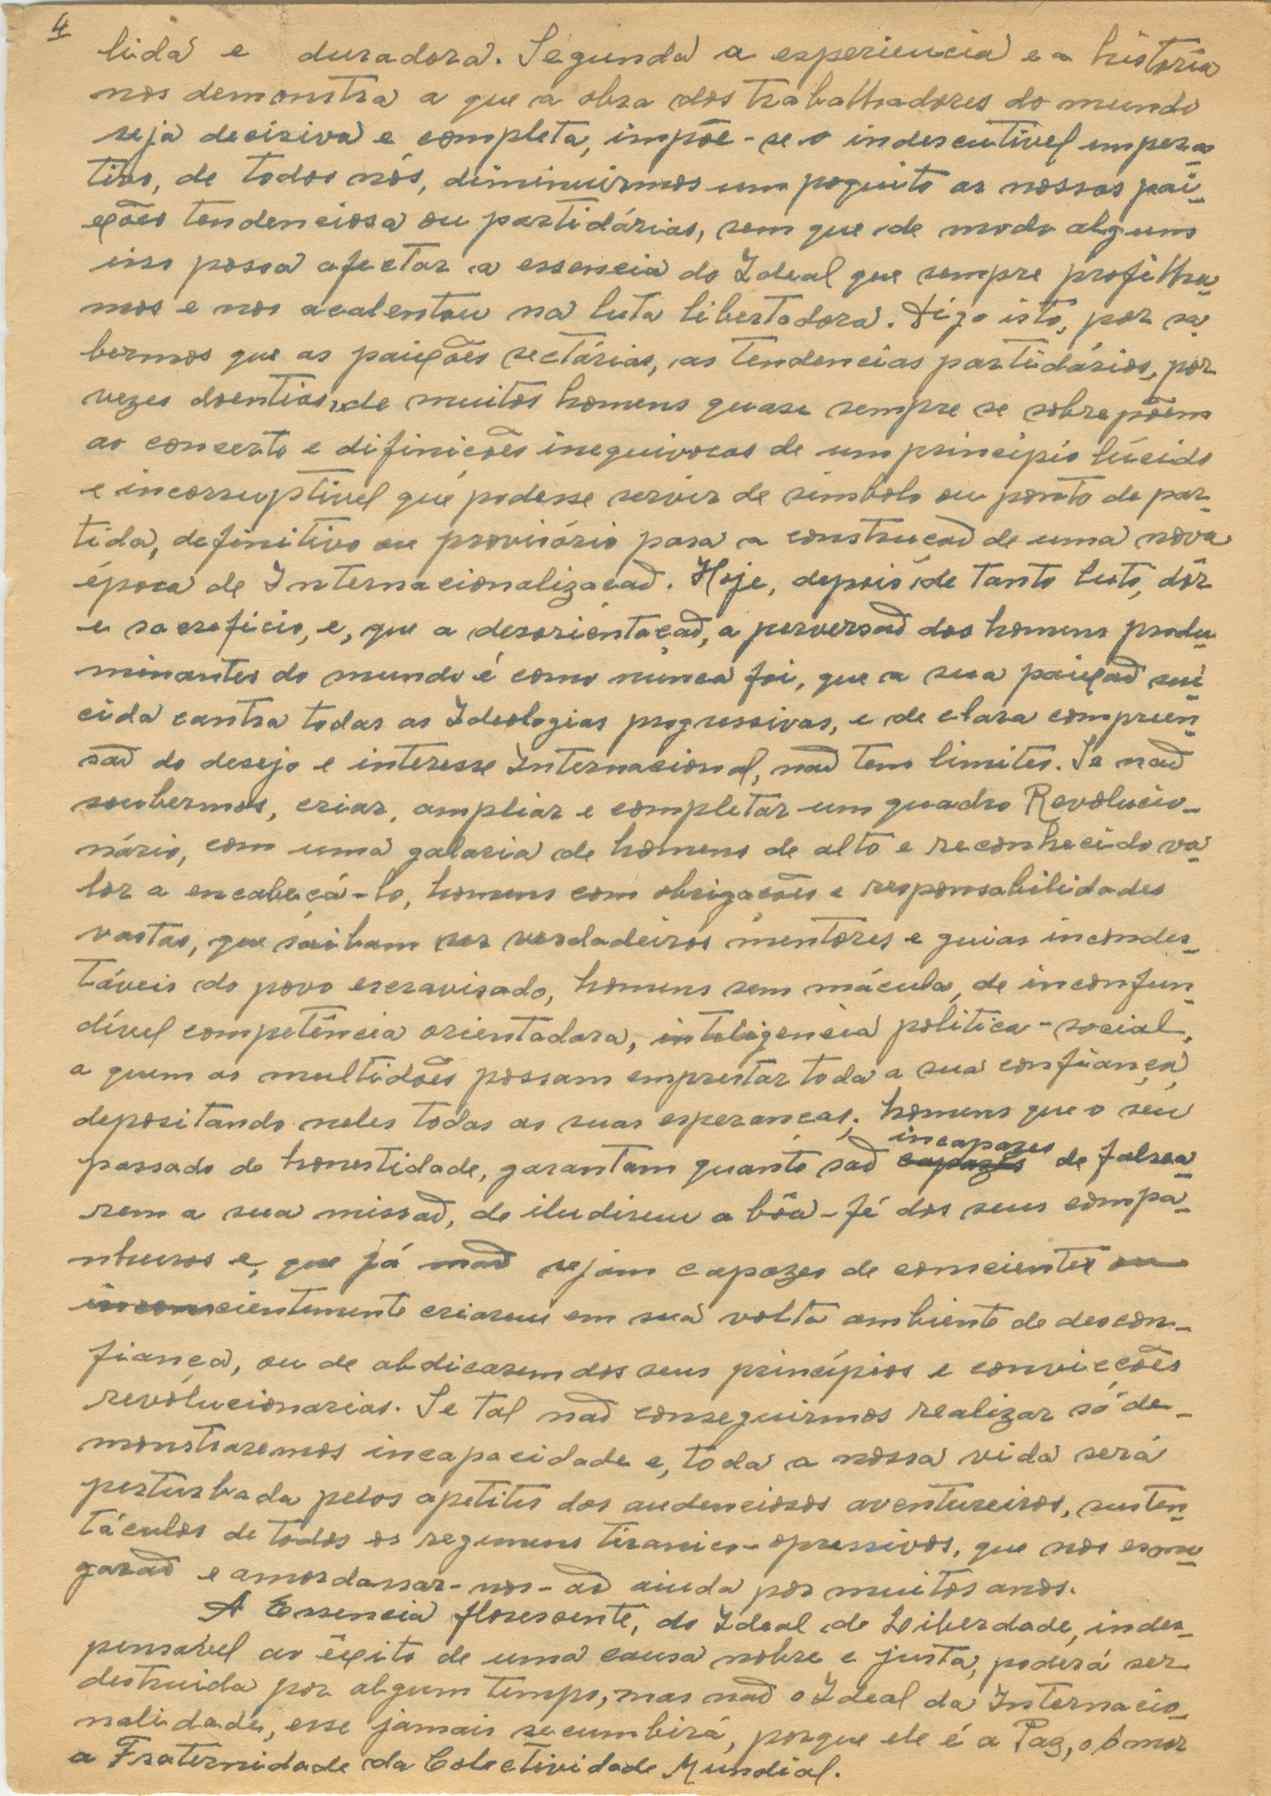 4
lida e duradora. Segunda a experiencia e a história
nos demonstra a que a obra dos trabalhadores do mundo
seja decisiva e completa, impõe-se o indescutivel impera-
tivo, de todos nós, diminuirmos um poquito as nossas pai-
xões tendenciosa ou partidárias, sem que de modo algum
isso possa afectar a essencia do Ideal que sempre profilha-
mos e nos acalentou na luta libertadora. Digo isto, por sa-
bermos que as paixões sectárias, as tendencias partidárias, por
vezes doentias, de muitos homens quase sempre se sobrepõem
ao concerto e difinicões inequivocas de um principio lúcido
e incorruptivel que podesse servir de simbolo ou ponto de par-
tida, definitivo ou provisório para a construçaõ de uma nova
época de Internacionalizacaõ. Hoje, depois de tanto luto, dôr
e sacreficio, e, que a desorientaçaõ, a perversaõ dos homens predu-
minantes do mundo é como nunca foi, que a sua paixaõ sui-
cida contra todas as Ideologias progressivas, e de clara compreen-
saõ do desejo e interesse Internacional, naõ tem limites. Se naõ
soubermos, criar, ampliar e completar um quadro Revolucio-
nário, com uma galaria de homens de alto e reconhecido va-
lor a encabeçá-lo, homens com obrigações e responsabilidades
vastas, que saibam ser verdadeiros mentores e guias incondes-
táveis do povo escravisado, homens sem mácula, de inconfun-
dível competência orientadora, inteligencia politica-social,
a quem as multidões possam emprestar toda a sua confiança,
depositando neles todas as suas esperanças; homens que o seu
passado de honestidade, garantam quanto saõ capazes incapazes de falsea-
rem a sua missaõ, de iludirem a bôa-fé dos seus compa-
nheiros e, que já mais sejam capazes de concientes ou
inconscientemente criarem em sua volta ambiente de descon-
fiança, ou de abdicarem dos seus princípios e convicções
revolucionarias. Se tal naõ conseguirmos realizar só de-
monstraremos incapacidade e, toda a nossa vida será
perturbada pelos apetites dos audenciosos aventureiros, susten-
táculos de todos os regimens tiranico-opressivos, que nos esma-
garaõ e amordassar-nos-aõ ainda por muitos anos.
A Essencia florescente, do Ideal de Liberdade, indes-
pensável ao êxito de uma causa nobre e justa, poderá ser
destruida por algum tempo, mas naõ o Ideal da Internacio-
nalidade, esse jamais sucumbirá, porque ele é a Paz, o Amor
a Fraternidade da Colectividade Mundial.